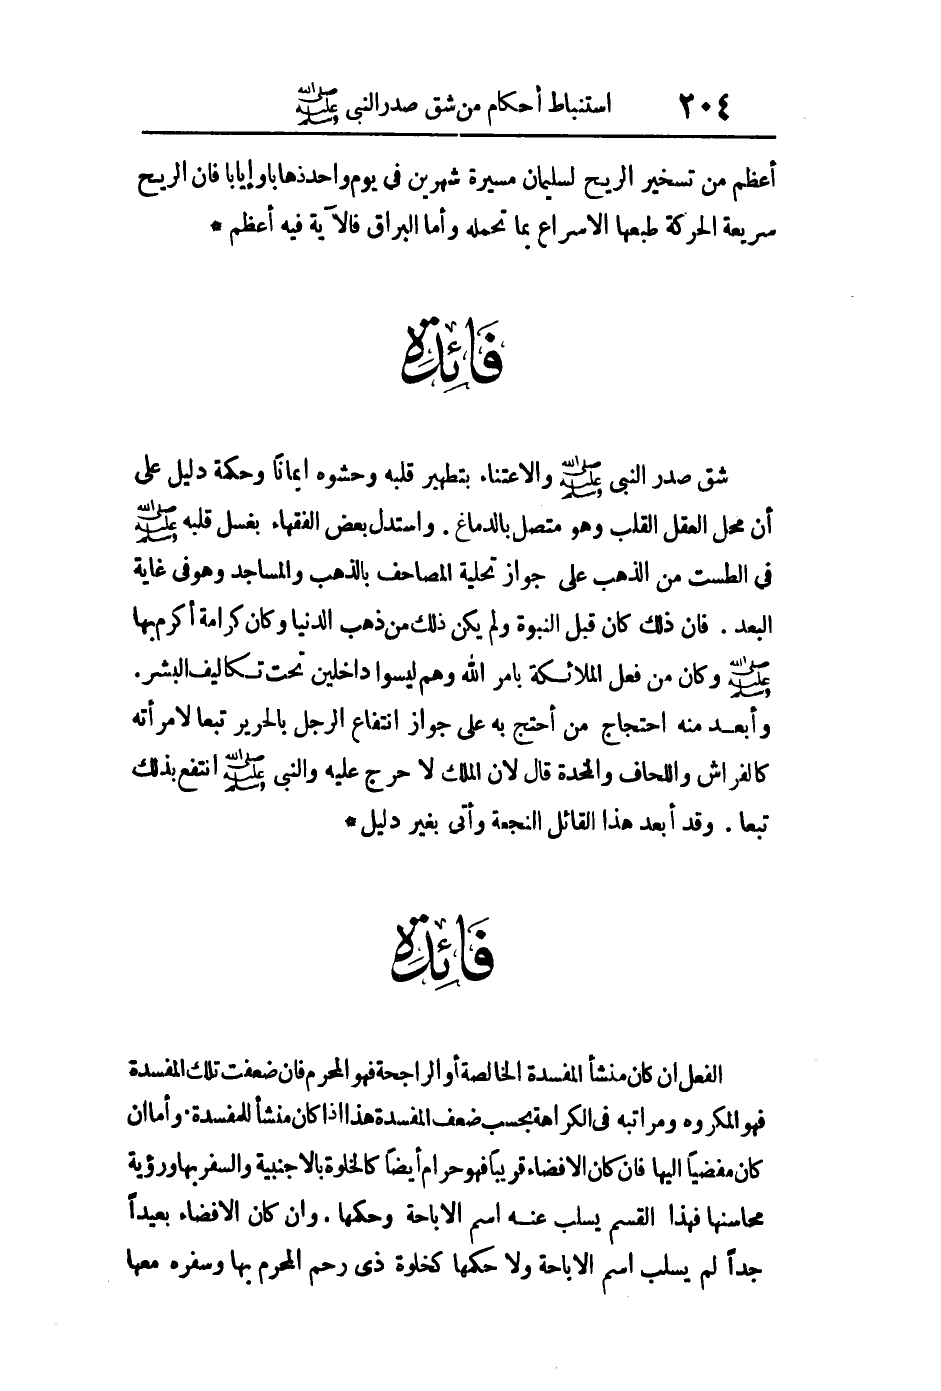 ٢٠٤ استنباط أحكام من شق صدر النبى ﷺ
أعظم من تسخير الريح لسليمان مسيرة شهرين فى يوم واحد ذهابا وإيابا فان الريح
سريعة الحركة طبعها الاسراع بما تحمله وأما البراق فالآية فيه أعظم *
فَائِدَة
شق صدر النبى ﷺ والاعتناء بتطهير قلبه وحشوه ايمانًا وحكمة دليل على
أن محل العقل القلب وهو متصل بالدماغ . واستدل بعض الفقهاء بغسل قلبه ﷺ
فى الطست من الذهب على جواز تحلية المصاحف بالذهب والمساجد وهو فى غاية
البعد . فان ذلك كان قبل النبوة ولم يكن ذلك من ذهب الدنيا وكان كرامة أكرم بها
ﷺ وكان من فعل الملائكة بامر الله وهم ليسوا داخلين تحت تكاليف البشر.
وأبعد منه احتجاج من أحتج به على جواز انتفاع الرجل بالحرير تبعا لامرأته
كالفراش واللحاف والمخدة قال لان الملك لا حرج عليه والنبى ﷺ انتفع بذلك
تبعا . وقد أبعد هذا القائل النجعة وأتى بغير دليل *
فَائِدَة
الفعل ان كان منشأ المفسدة الخالصة أو الراجحة فهو المحرم فان ضعفت تلك المفسدة
فهو المكروه ومراتبه فى الكراهة بحسب ضعف المفسدة هذا اذا كان منشأ للمفسدة. وأما ان
كان مفضيًا اليها فان كان الافضاء قريبًا فهو حرام أيضًا كالخلوة بالاجنبية والسفر بها ورؤية
محاسنها فهذا القسم يسلب عنه اسم الاباحة وحكمها . وان كان الافضاء بعيدًا
جدًا لم يسلب اسم الاباحة ولا حكمها كخلوة ذى رحم المحرم بها وسفره معها